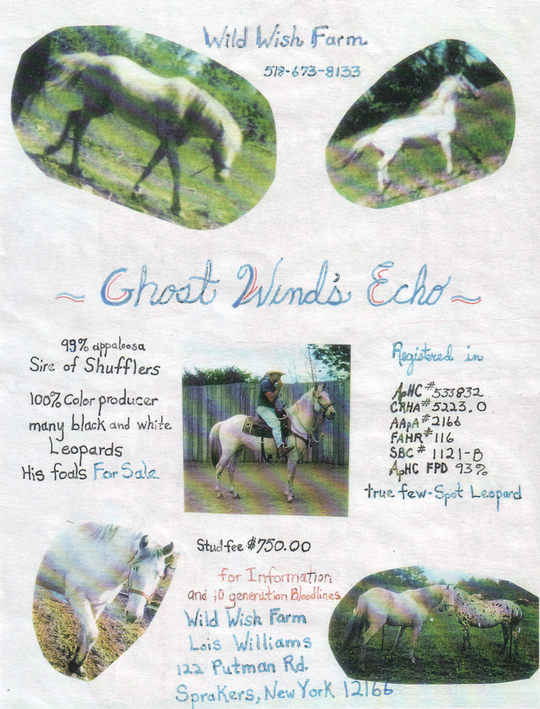 Wild Wish Farm
518-673-8133
~ Ghost Wind's Echo ~
99% appaloosa
Sire of Shufflers
100% Color producer
many black and white
Leopards
His foals For Sale
Registered in
ApHC #533832
CRHA #5223.0
AApA #2166
FAHR #116
SBC # 1121-B
ApHC FPD 93%
true few-Spot Leopard
Stud fee $750.00
for Information
and 10 generation Bloodlines
Wild Wish Farm
Lois Williams
122 Putman Rd.
Sprakers, New York 12166